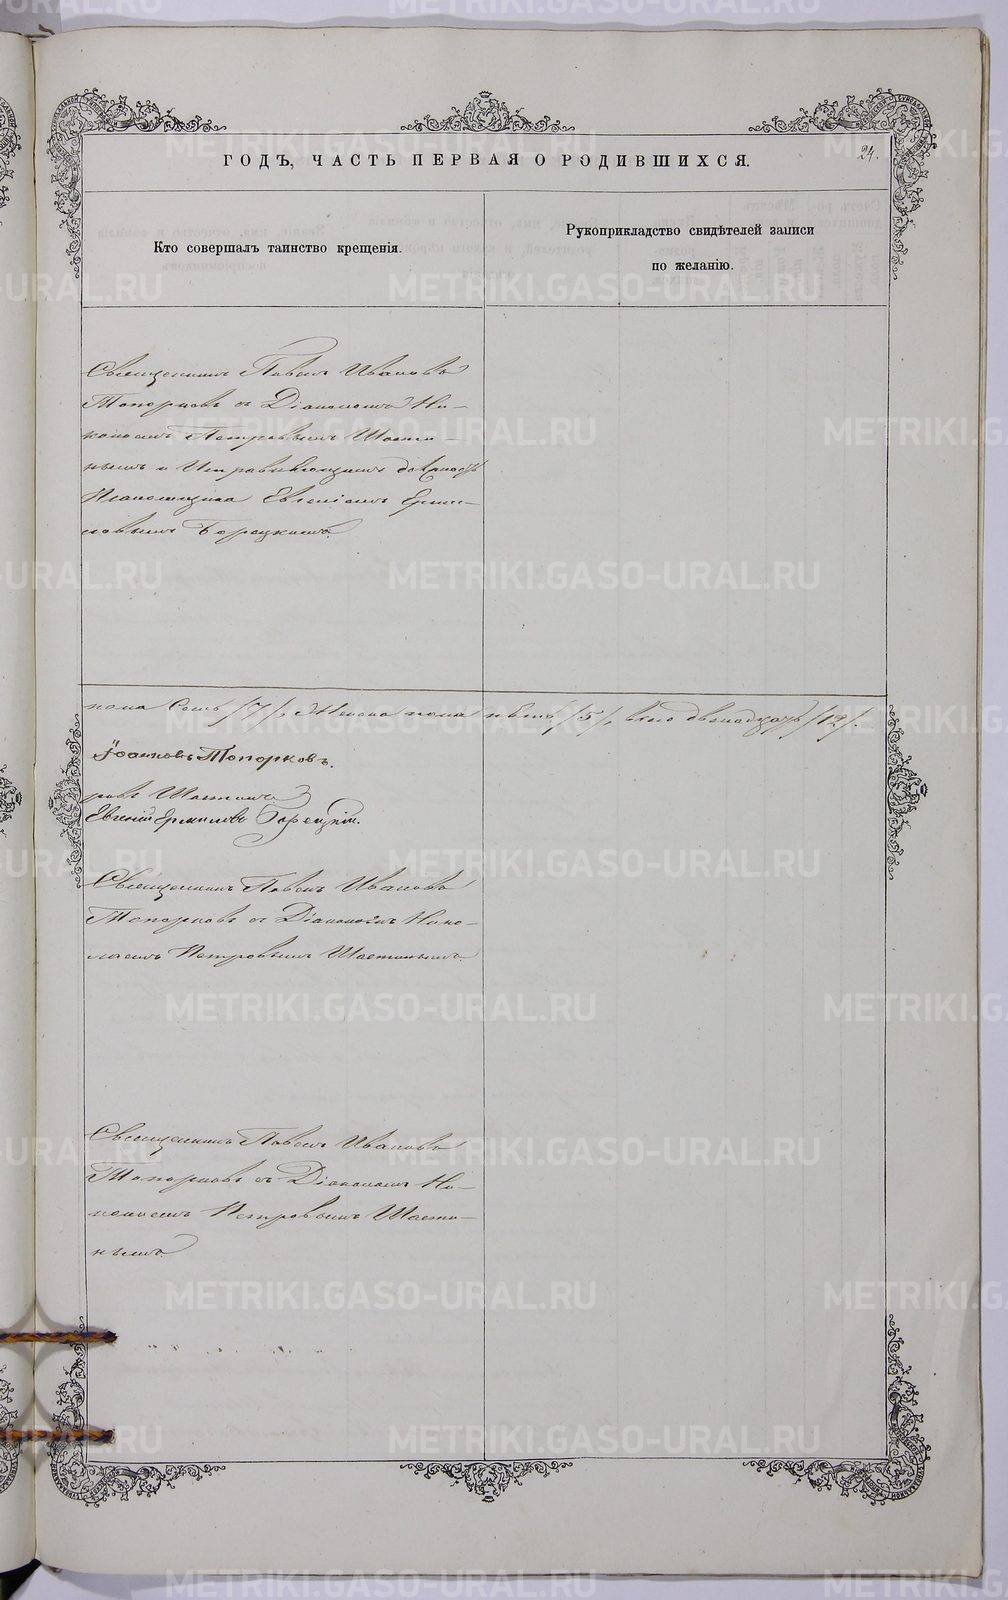 24.
ГОДЪ, ЧАСТЬ ПЕРВАЯ О РОДИВШИХСЯ.
Кто совершалъ таинство крещенія.
Рукоприкладство свидѣтелей записи
по желанію.
Священникъ Павелъ Ивановъ
Топорковъ съ Діакономъ Ни-
колаемъ Петровымъ Шасти-
нымъ и Исправляющимъ
Псаломщика Евгеніемъ Ерми-
ловымъ Борецкимъ.
пола Семь /7/, Женска пола пять /5/, всего двенадцать /12/.
Іоанновъ Топорковъ.
ровъ Шастинъ
Евгеній Ермиловъ Борецкій.
Священникъ Павелъ Ивановъ
Топорковъ съ Діакономъ Нико-
лаемъ Петровымъ Шастинымъ.
Священникъ Павелъ Ивановъ
Топорковъ съ Діакономъ Ни-
колаемъ Петровымъ Шасти-
нымъ.
METRIKI.GASO-URAL.RU